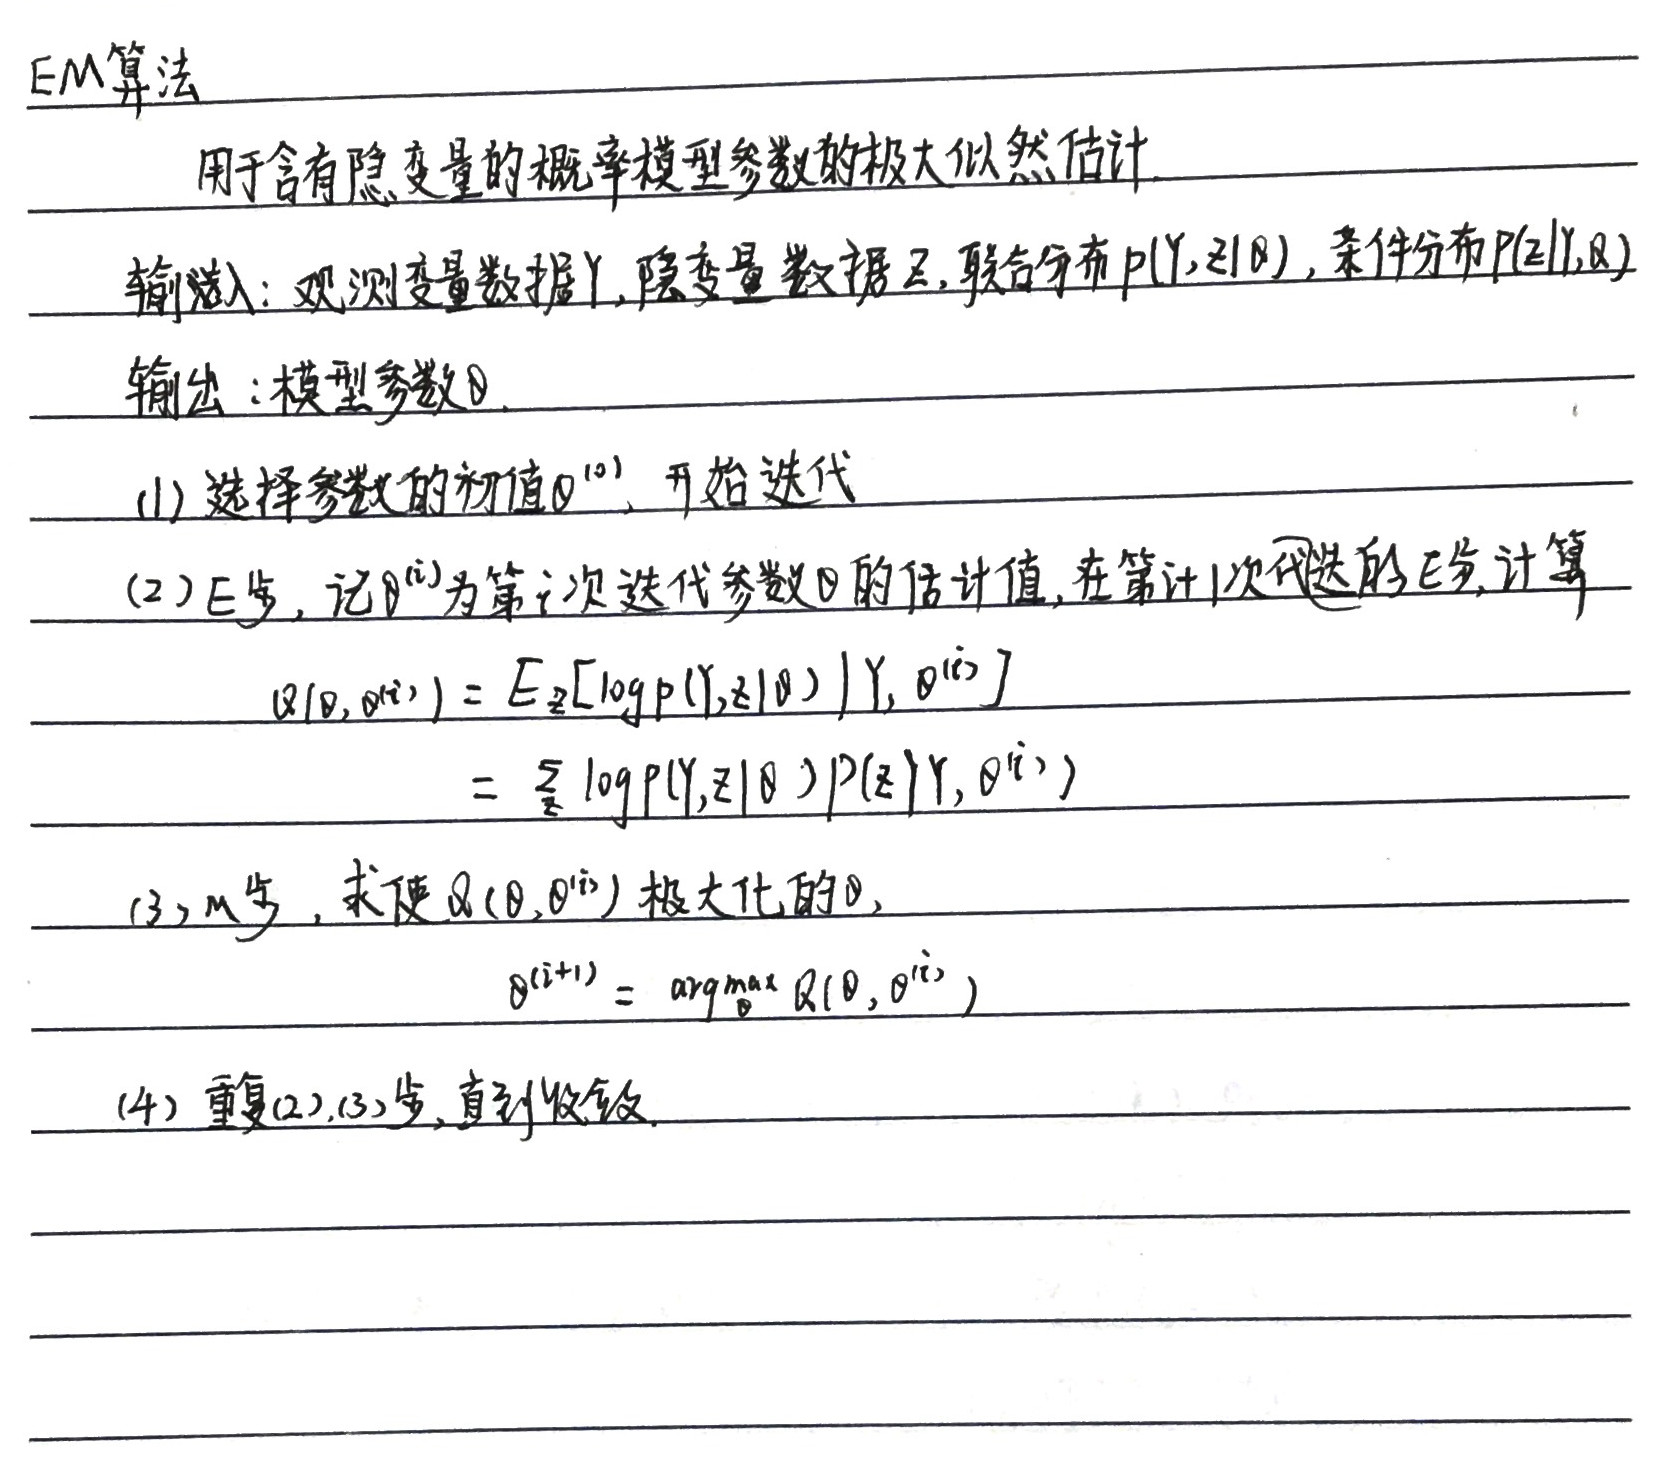 EM算法
用于含有隐变量的概率模型参数的极大似然估计.
输入: 观测变量数据Y, 隐变量数据Z, 联合分布p(Y,Z|θ), 条件分布P(Z|Y,θ)
输出:模型参数θ.
(1) 选择参数的初值θ^(0), 开始迭代
(2) E步, 记θ^(i)为第i次迭代参数θ的估计值, 在第i+1次代迭的E步, 计算
Q(θ, θ^(i)) = E_Z[log p(Y,Z|θ) | Y, θ^(i)]
= Σ_Z log P(Y,Z|θ) P(Z|Y, θ^(i))
(3) M步, 求使Q(θ,θ^(i))极大化的θ,
θ^(i+1) = arg max_θ Q(θ, θ^(i))
(4) 重复(2),(3)步, 直到收敛.